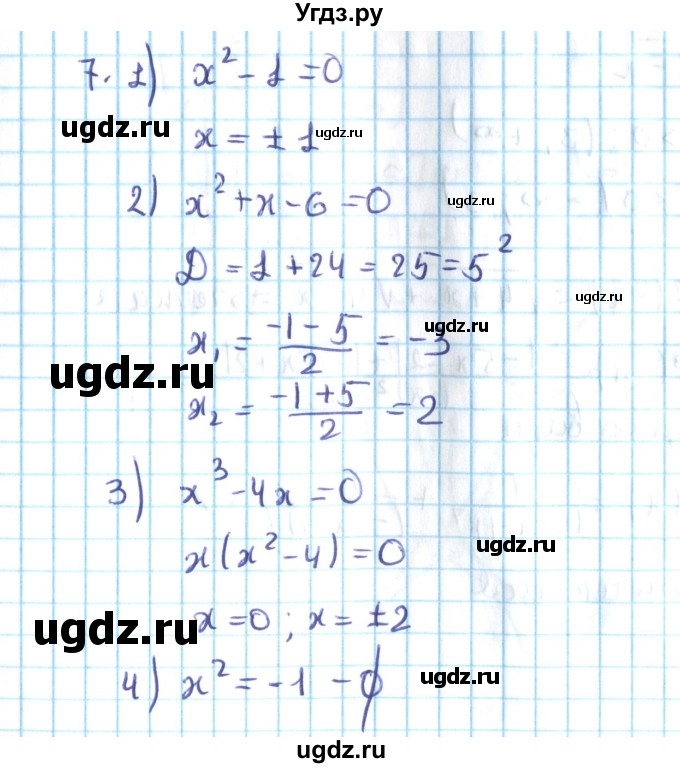 Угдз.ру
7. 1) x² - 1 = 0
ugdz.ru
x = ± 1
ugdz.ru
2) x² + x - 6 = 0
ugdz.ru
D = 1 + 24 = 25 = 5²
ugdz.ru
x₁ = (-1 - 5)/2 = -3
ugdz.ru
ugdz.ru
x₂ = (-1 + 5)/2 = 2
3) x³ - 4x = 0
x(x² - 4) = 0
ugdz.ru
ugdz.ru
x = 0 ; x = ±2
4) x² = -1 - ϕ
ugdz.ru
ugdz.ru